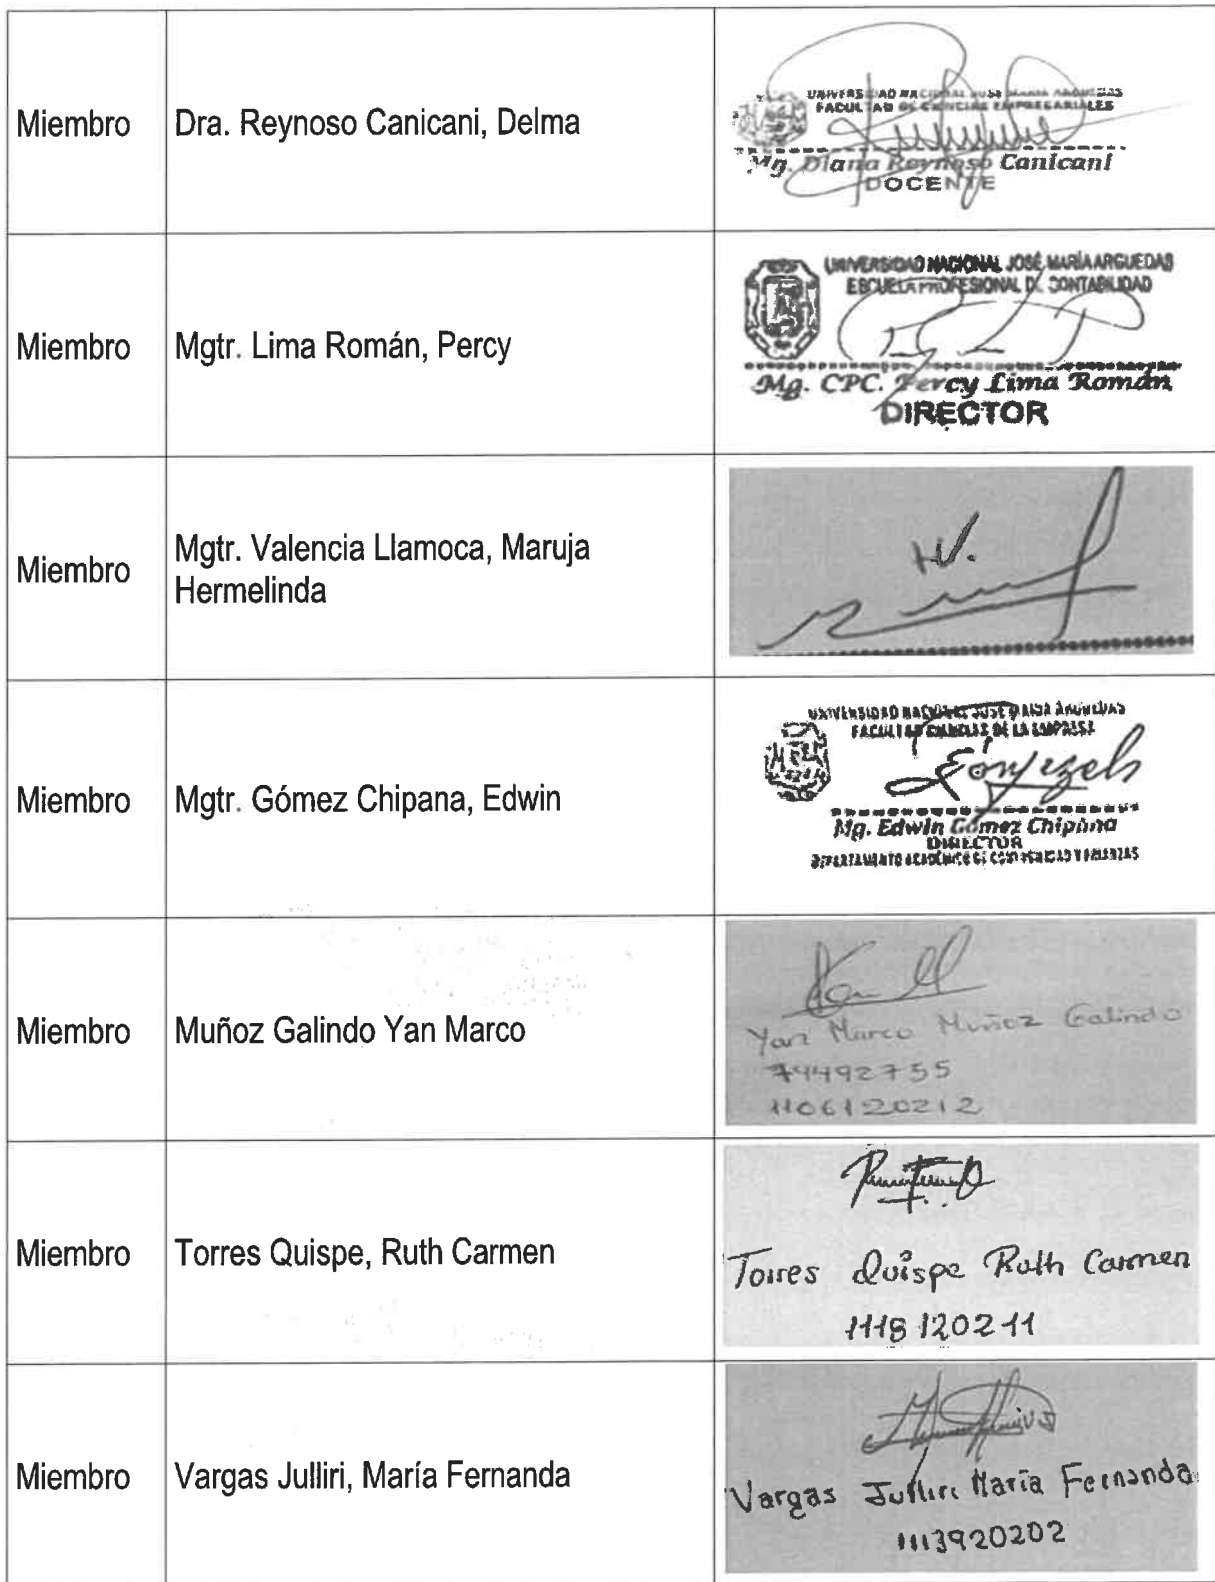 Miembro
Dra. Reynoso Canicani, Delma
UNIVERSIDAD NACIONAL JOSE MARIA ARGUEDAS
FACULTAD DE CIENCIAS EMPRESARIALES
Mg. Diana Reynoso Canicani
DOCENTE
Miembro
Mgtr. Lima Román, Percy
UNIVERSIDAD NACIONAL JOSÉ MARÍA ARGUEDAS
ESCUELA PROFESIONAL DE CONTABILIDAD
Mg. CPC. Percy Lima Román
DIRECTOR
Miembro
Mgtr. Valencia Llamoca, Maruja
Hermelinda
Miembro
Mgtr. Gómez Chipana, Edwin
UNIVERSIDAD NACIONAL JOSE MARIA ARGUEDAS
FACULTAD CIENCIAS DE LA EMPRESA
Mg. Edwin Gómez Chipana
DIRECTOR
DEPARTAMENTO ACADÉMICO DE CONTABILIDAD Y FINANZAS
Miembro
Muñoz Galindo Yan Marco
Yan Marco Muñoz Galindo
74492755
1106120212
Miembro
Torres Quispe, Ruth Carmen
Torres Quispe Ruth Carmen
1118120211
Miembro
Vargas Julliri, María Fernanda
Vargas Julliri María Fernanda
1113920202